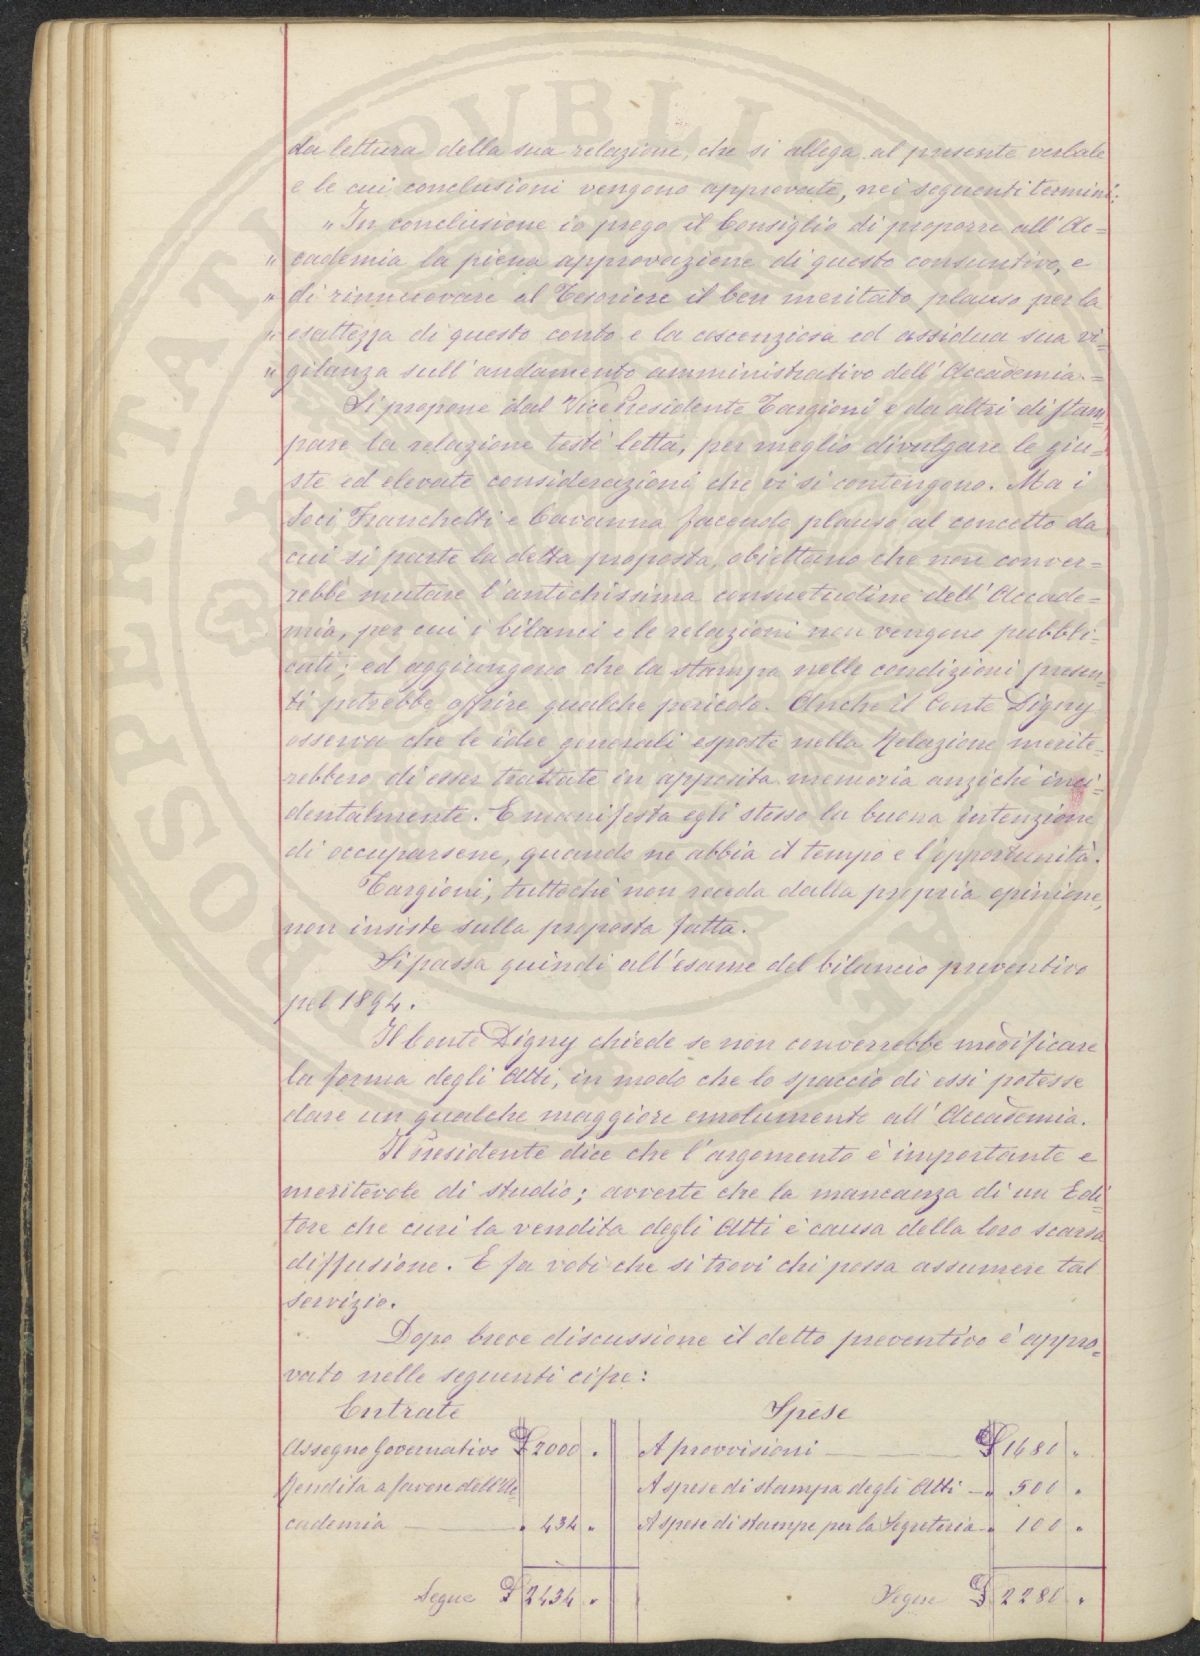 da lettura della sua relazione, che si allega al presente verbale
e le cui conclusioni vengono approvate, nei seguenti termini:
"In conclusione io prego il Consiglio di proporre all'Ac=
" cademia la piena approvazione di questo consuntivo, e
" di rinnuovare al Tesoriere il ben meritato plauso per la
" esattezza di questo conto e la coscenziosa ed assidua sua vi-
" gilanza sull'andamento amministrativo dell'Accademia.=
Si propone dal Vice Presidente Targioni e da altri di stam-
pare la relazione testè letta, per meglio divulgare le giu=
ste ed elevate considerazioni che vi si contengono. Ma i
Soci Franchetti e Cavanna facendo plauso al concetto da
cui si parte la detta proposta, obiettano che non conver=
rebbe mutare l'antichissima consuetudine dell'Accade=
mia, per cui i bilanci e le relazioni non vengono pubbli-
cati; ed aggiungono che la stampa nelle condizioni presen-
ti potrebbe offrire qualche pericolo. Anche il Conte Digny
osserva che le idee generali esposte nella Relazione merite-
rebbero di esser trattate in apposita memoria anzichè inci-
dentalmente. E manifesta egli stesso la buona intenzione
di occuparsene, quando ne abbia il tempo e l'opportunità.
Targioni, tuttochè non receda dalla propria opinione,
non insiste sulla proposta fatta.
Si passa quindi all'esame del bilancio preventivo
pel 1894.
Il Conte Digny chiede se non converrebbe modificare
la forma degli Atti, in modo che lo spaccio di essi potesse
dare un qualche maggiore emolumento all'Accademia.
Il Presidente dice che l'argomento è importante e
meritevole di studio; avverte che la mancanza di un Edi-
tore che curi la vendita degli Atti è causa della loro scarsa
diffusione. E fa voti che si trovi chi possa assumere tal
servizio.
Dopo breve discussione il detto preventivo è appro=
vato nelle seguenti cifre:
Entrate Spese
Assegno Governativo £ 2000 " A provvisioni £ 1680 "
Rendita a favore dell'Ac A spese di stampa degli Atti " 500 "
cademia " 434 " A spese di stampe per la Segreteria " 100 "
Segue £ 2434 " Segue £ 2280 "
PROSPERITATI PUBLICAE